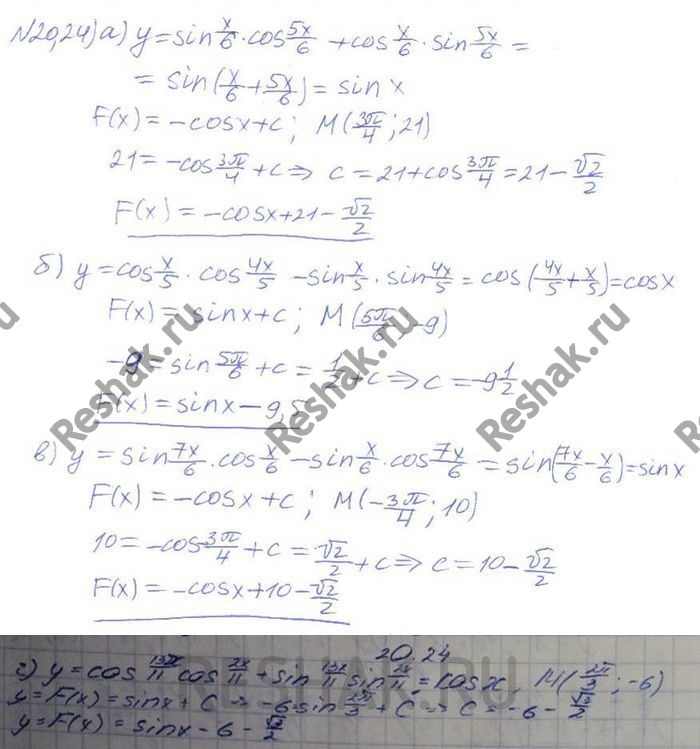 №20,24) а) y = sin x/6 · cos 5x/6 + cos x/6 · sin 5x/6 =
= sin(x/6 + 5x/6) = sin x
F(x) = -cosx+c; M(3π/4; 21)
21 = -cos 3π/4 + c ⇒ c = 21 + cos 3π/4 = 21 - √2/2
F(x) = -cosx + 21 - √2/2
б) y = cos x/5 · cos 4x/5 - sin x/5 · sin 4x/5 = cos(4x/5 + x/5) = cosx
F(x) = sinx + c; M(5π/6; -9)
-9 = sin 5π/6 + c = 1/2 + c ⇒ c = -9 1/2
F(x) = sinx - 9,5
в) y = sin 7x/6 · cos x/6 - sin x/6 · cos 7x/6 = sin(7x/6 - x/6) = sinx
F(x) = -cosx + c; M(-3π/4; 10)
10 = -cos 3π/4 + c = √2/2 + c ⇒ c = 10 - √2/2
F(x) = -cosx + 10 - √2/2
20.24
г) y = cos 13x/11 cos 2x/11 + sin 13x/11 sin 2x/11 = cos x, M(2π/3; -6)
y = F(x) = sinx + C ⇒ -6 = sin 2π/3 + C ⇒ C = -6 - √3/2
y = F(x) = sinx - 6 - √3/2
Reshak.ru
Reshak.ru
Reshak.ru
RESHAK.RU